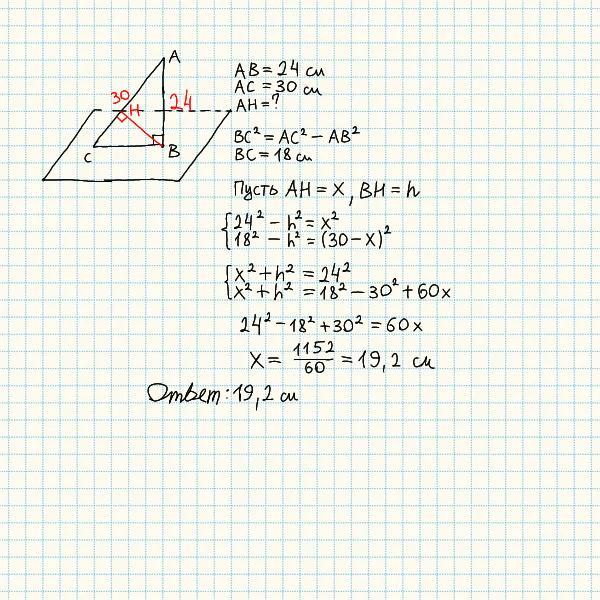 A
30
H
24
C
B
AB = 24 см
AC = 30 см
AH = ?
BC² = AC² − AB²
BC = 18 см
Пусть AH = x, BH = h
{24² − h² = x²
{18² − h² = (30 − x)²
{x² + h² = 24²
{x² + h² = 18² − 30² + 60x
24² − 18² + 30² = 60x
x = 1152/60 = 19,2 см
Ответ: 19,2 см